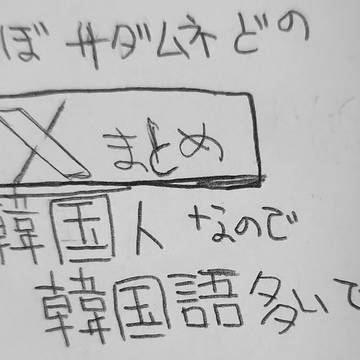 ぼサダムネどの
Xまとめ
韓国人なので
韓国語多いで